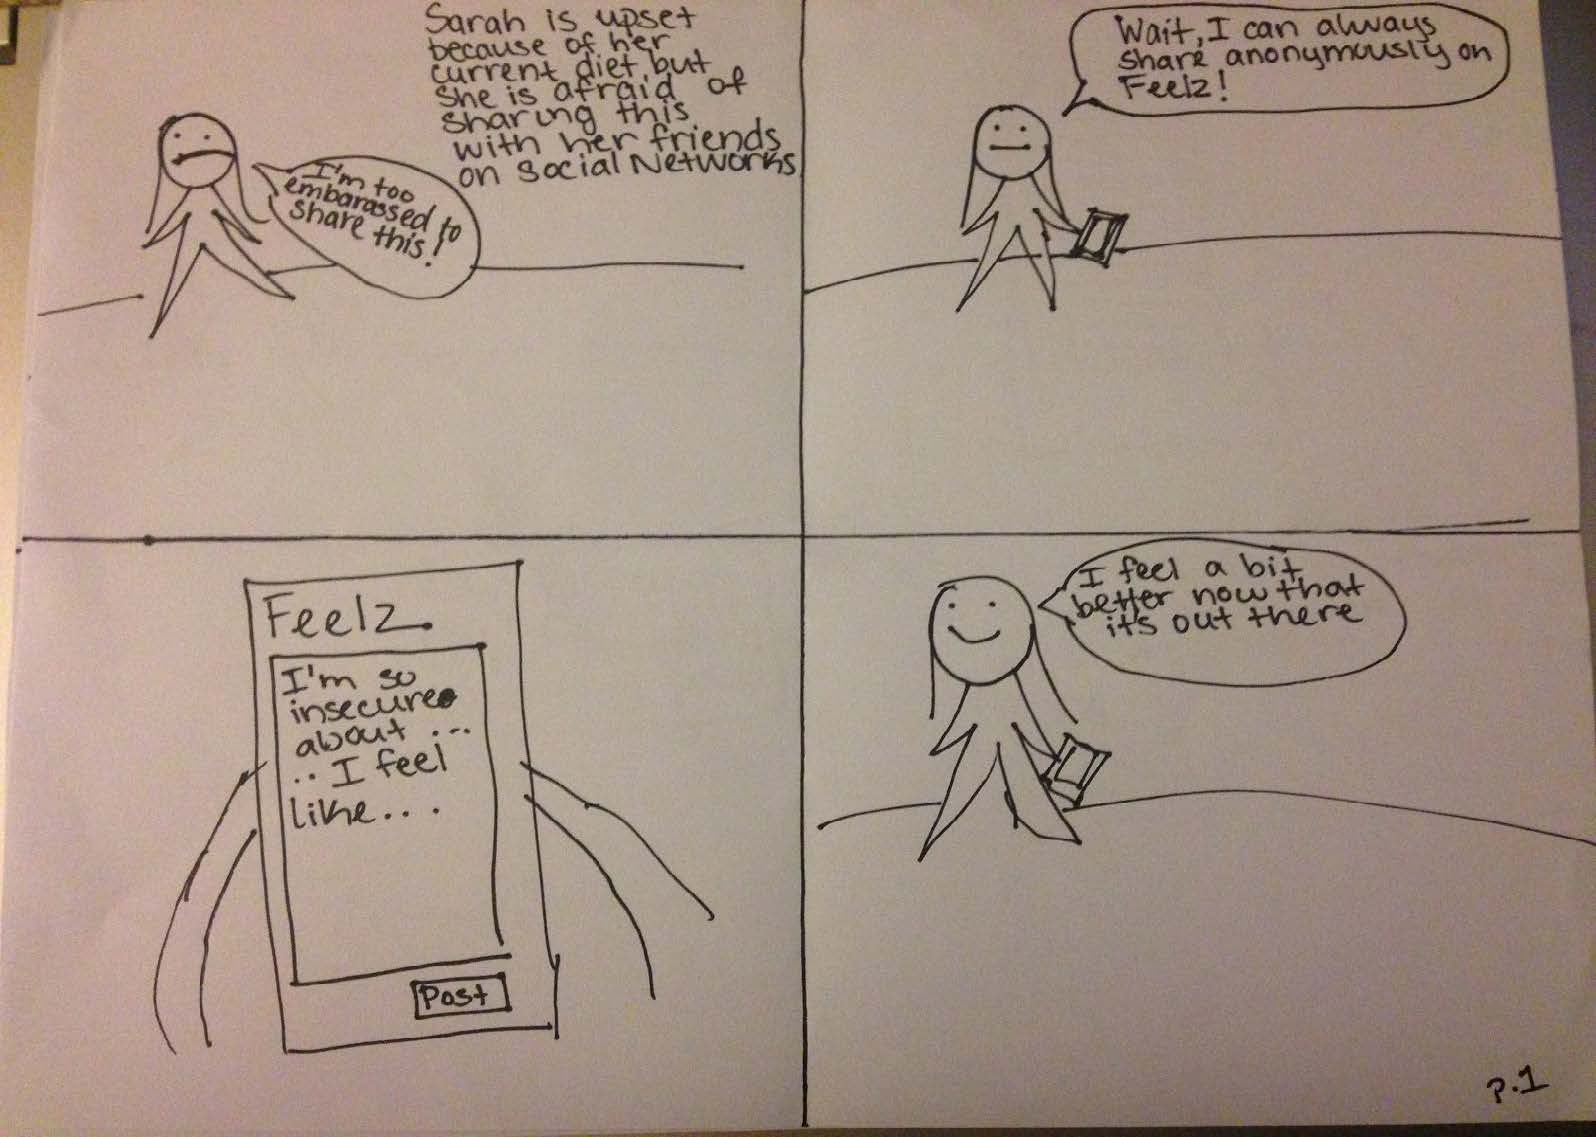 Sarah is upset
because of her
current diet, but
she is afraid of
sharing this
with her friends
on social Networks
I'm too
embarassed to
share this!
Wait, I can always
share anonymously on
Feelz!
Feelz
I'm so
insecure
about ...
.. I feel
like....
Post
I feel a bit
better now that
it's out there
P.1